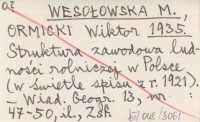 WESOŁOWSKA M.,
ORMICKI Wiktor 1935.
Struktura zawodowa lud-
ności rolniczej w Polsce
(w świetle spisu z r. 1921).
- Wiad. Geogr. 13, nr :
47-50, il.,